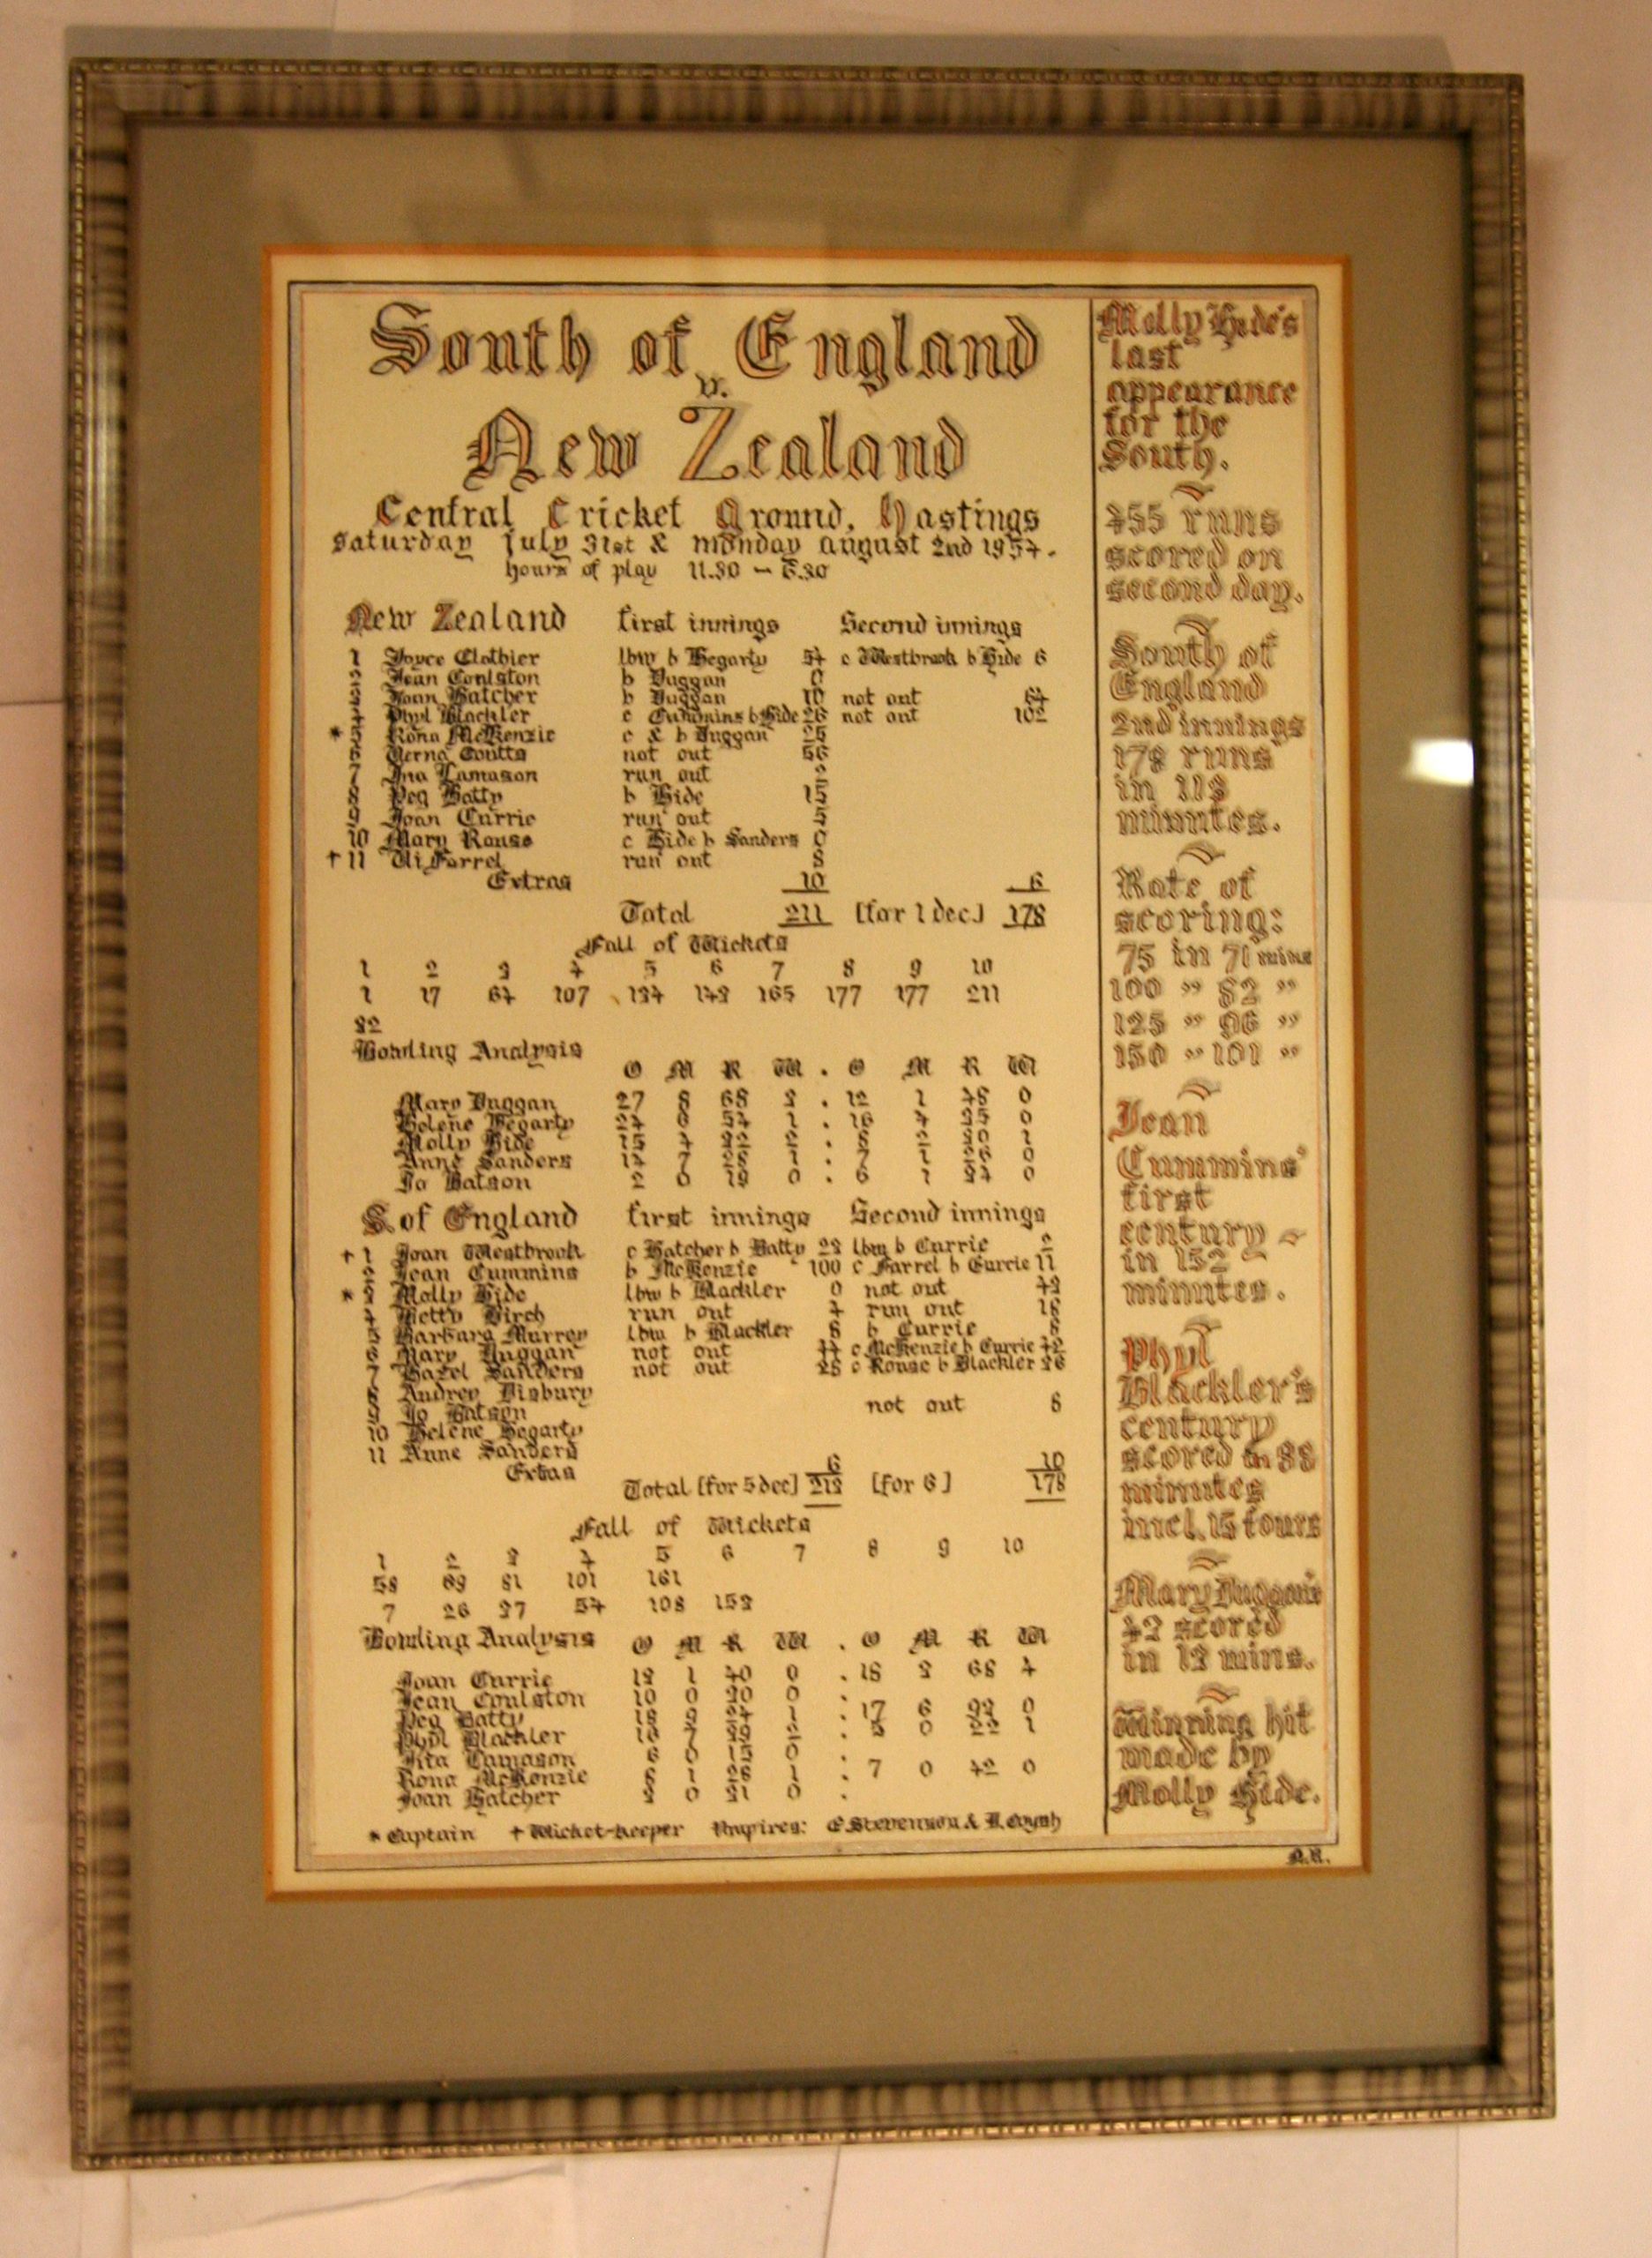 South of England
v.
New Zealand
Central Cricket Ground, Hastings
Saturday July 31st & monday august 2nd 1954.
hours of play 11.30 – 6.30
New Zealand first innings Second innings
1 Joyce Clothier lbw b Hegarty 54 c Westbrook b Hide 6
2 Jean Coulston b Duggan 0
3 Joan Hatcher b Duggan 10 not out 64
4 Phyl Blackler c Cummins b Hide 26 not out 102
* 5 Rona McKenzie c & b Duggan 25
6 Verna Coutts not out 56
7 Ina Lamason run out 2
8 Peg Batty b Hide 15
9 Joan Currie run out 5
10 Mary Rouse c Hide b Sanders 0
† 11 Vi Farrel run out 8
Extras 10 6
Total 211 (for 1 dec) 178
Fall of Wickets
1 2 3 4 5 6 7 8 9 10
1 17 64 107 134 143 165 177 177 211
32
Bowling Analysis
O M R W . O M R W
Mary Duggan 27 8 68 3 . 12 1 48 0
Helene Hegarty 24 6 54 1 . 16 4 35 0
Molly Hide 15 4 32 2 . 8 2 30 1
Anne Sanders 14 7 28 1 . 7 1 26 0
Jo Batson 2 0 19 0 . 6 1 34 0
S. of England first innings Second innings
† 1 Joan Westbrook c Hatcher b Batty 23 lbw b Currie 2
2 Jean Cummins b McKenzie 100 c Farrel b Currie 11
* 3 Molly Hide lbw b Blackler 0 not out 43
4 Betty Birch run out 4 run out 18
5 Barbara Murrey lbw b Blackler 8 b Currie 8
6 Mary Duggan not out 44 c McKenzie b Currie 42
7 Hazel Sanders not out 28 c Rouse b Blackler 36
8 Audrey Disbury
9 Jo Batson not out 8
10 Helene Hegarty
11 Anne Sanders
Extras 6 10
Total (for 5 dec) 213 (for 6) 178
Fall of Wickets
1 2 3 4 5 6 7 8 9 10
58 69 81 101 161
7 26 37 54 108 153
Bowling Analysis O M R W . O M R W
Joan Currie 13 1 40 0 . 18 3 68 4
Jean Coulston 10 0 30 0 .
Peg Batty 18 9 34 1 . 17 6 0
Phyl Blackler 16 7 39 2 . 5 0 22 1
Lamason 6 0 15 0 .
Rona McKenzie 8 1 28 1 . 7 0 42 0
Joan Hatcher 3 0 21 0 .
* Captain † Wicket-keeper Umpires: E Stevenson &
Molly Hide's
last
appearance
for the
South.
455 runs
scored on
second day.
South of
England
2nd innings
178 runs
in 113
minutes.
Rate of
scoring:
75 in 71 mins
100 " 82 "
125 " 96 "
150 " 101 "
Jean
Cummins'
first
century –
in 152
minutes.
Phyl
Blackler's
century
scored in 88
minutes
incl. 15 fours
Mary Duggan's
42 scored
in 13 mins.
Winning hit
made by
Molly Hide.